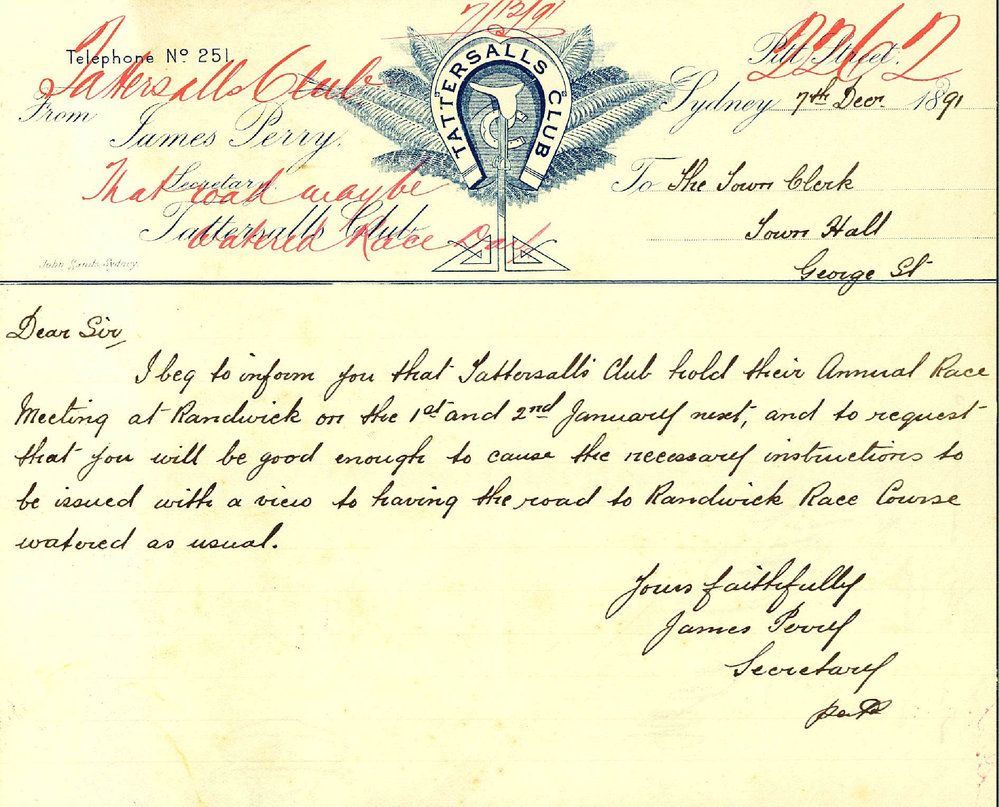 7/12/91
Telephone Nº 251.
Tattersalls Club
Pitt Street.
2262
From
James Perry.
Secretary
Tattersalls Club
That road may be
watered Race Days
TATTERSALLS CLUB
Sydney 7th Decr. 1891
To The Town Clerk
Town Hall
George St
John Sands Sydney.
Dear Sir,
I beg to inform you that Tattersall's Club hold their Annual Race
Meeting at Randwick on the 1st and 2nd January next, and to request
that you will be good enough to cause the necessary instructions to
be issued with a view to having the road to Randwick Race Course
watered as usual.
Yours faithfully
James Perry
Secretary